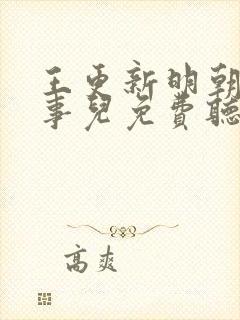 王更新明朝
事兒免費聽
高爽